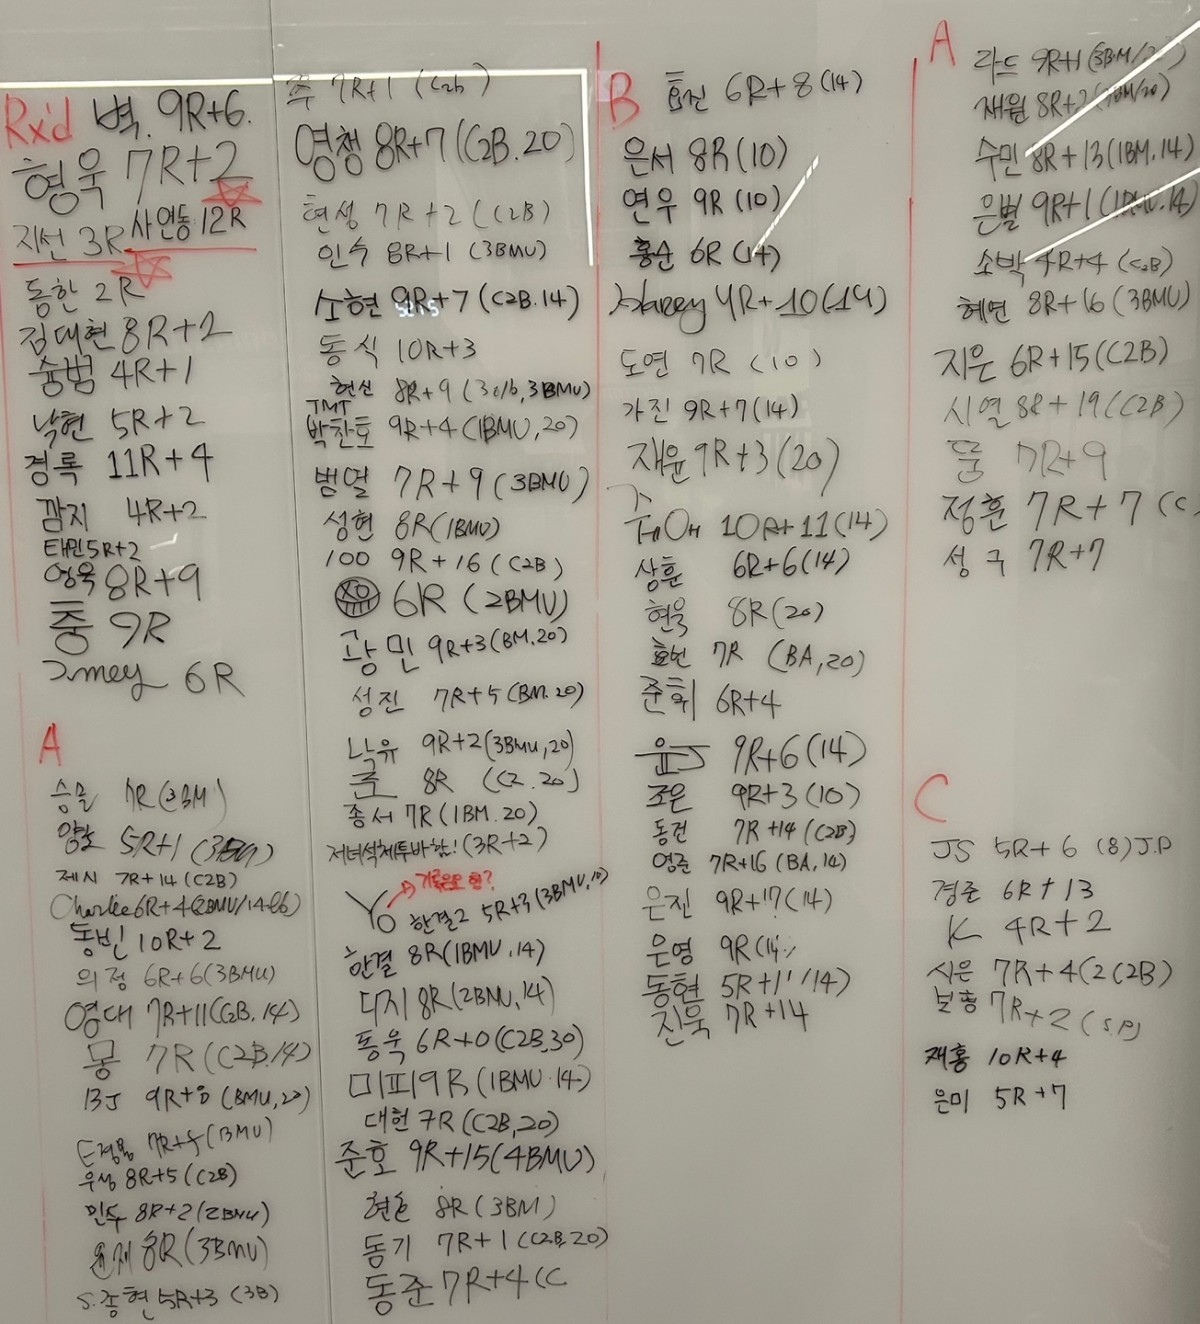 Rx'd 벽. 9R+6.
형욱 7R+2
지선 3R 사연동 12R
동한 2R
김대현 8R+2
숭범 4R+1
낙현 5R+2
경록 11R+4
깜지 4R+2
태민 5R+2
영욱 8R+9
중 9R
6R
A
7R (3BM)
양호 5R+1
제시 7R+14 (C2B)
Charlee 6R+4
동빈 10R+2
의정 6R+6 (3BMU)
영대 7R+11 (C2B. 14)
몽 7R (C2B.14)
BJ 9R+8 (BMU, 20)
(BMU)
우성 8R+5 (C2B)
민수 8R+2 (2BMU)
윤재 8R (3BMU)
S.종현 5R+3 (3B)
쭈 7R+1 (C2b)
영챙 8R+7 (C2B. 20)
현성 7R+2 (C2B)
인수 8R+1 (3BMU)
소현 9R+7 (C2B.14)
동식 10R+3
현신 8R+9 (3BMU)
TMT
박찬호 9R+4 (1BMU, 20)
범열 7R+9 (3BMU)
성현 8R (1BMU)
100 9R+16 (C2B)
6R (2BMU)
광민 9R+3 (BM.20)
성진 7R+5 (BM.20)
낙유 9R+2 (3BMU, 20)
준 8R (C2.20)
종서 7R (1BM.20)
저녁석체투바함! (3R+2)
Yo
한결2 5R+3 (3BMU, 10)
한결 8R (1BMU, 14)
디지 8R (2BMU, 14)
동욱 6R+0 (C2B.30)
미피 9R (1BMU.14)
대헌 7R (C2B, 20)
준호 9R+15 (4BMU)
8R (3BM)
동기 7R+1 (C2B.20)
동준 7R+4 (C
B 효진 6R+8 (14)
은서 8R (10)
연우 9R (10)
홍순 6R (14)
Harry 4R+10 (14)
도연 7R (10)
가진 9R+7 (14)
재윤 9R+3 (20)
10R+11 (14)
상훈 6R+6 (14)
현욱 8R (20)
효빈 7R (BA, 20)
준휘 6R+4
윤J 9R+6 (14)
조은 9R+3 (10)
동건 7R+14 (C2B)
영준 7R+16 (BA, 14)
은진 9R+17 (14)
은영 9R (14)
동현 5R+11 (14)
진욱 7R+14
A 라드 9R+1
재원 8R+2
수민 8R+13 (1BM.14)
은별 9R+1
소박 4R+4 (C2B)
혜연 8R+16 (3BMU)
지은 6R+15 (C2B)
시열 8R+19 (C2B)
뚱 7R+9
정훈 7R+7 (C
성구 7R+7
C
JS 5R+6 (8) J.P
경준 6R+13
K 4R+2
시은 7R+4 (2 C2B)
보흥 7R+2 (S.P)
재홍 10R+4
은미 5R+7